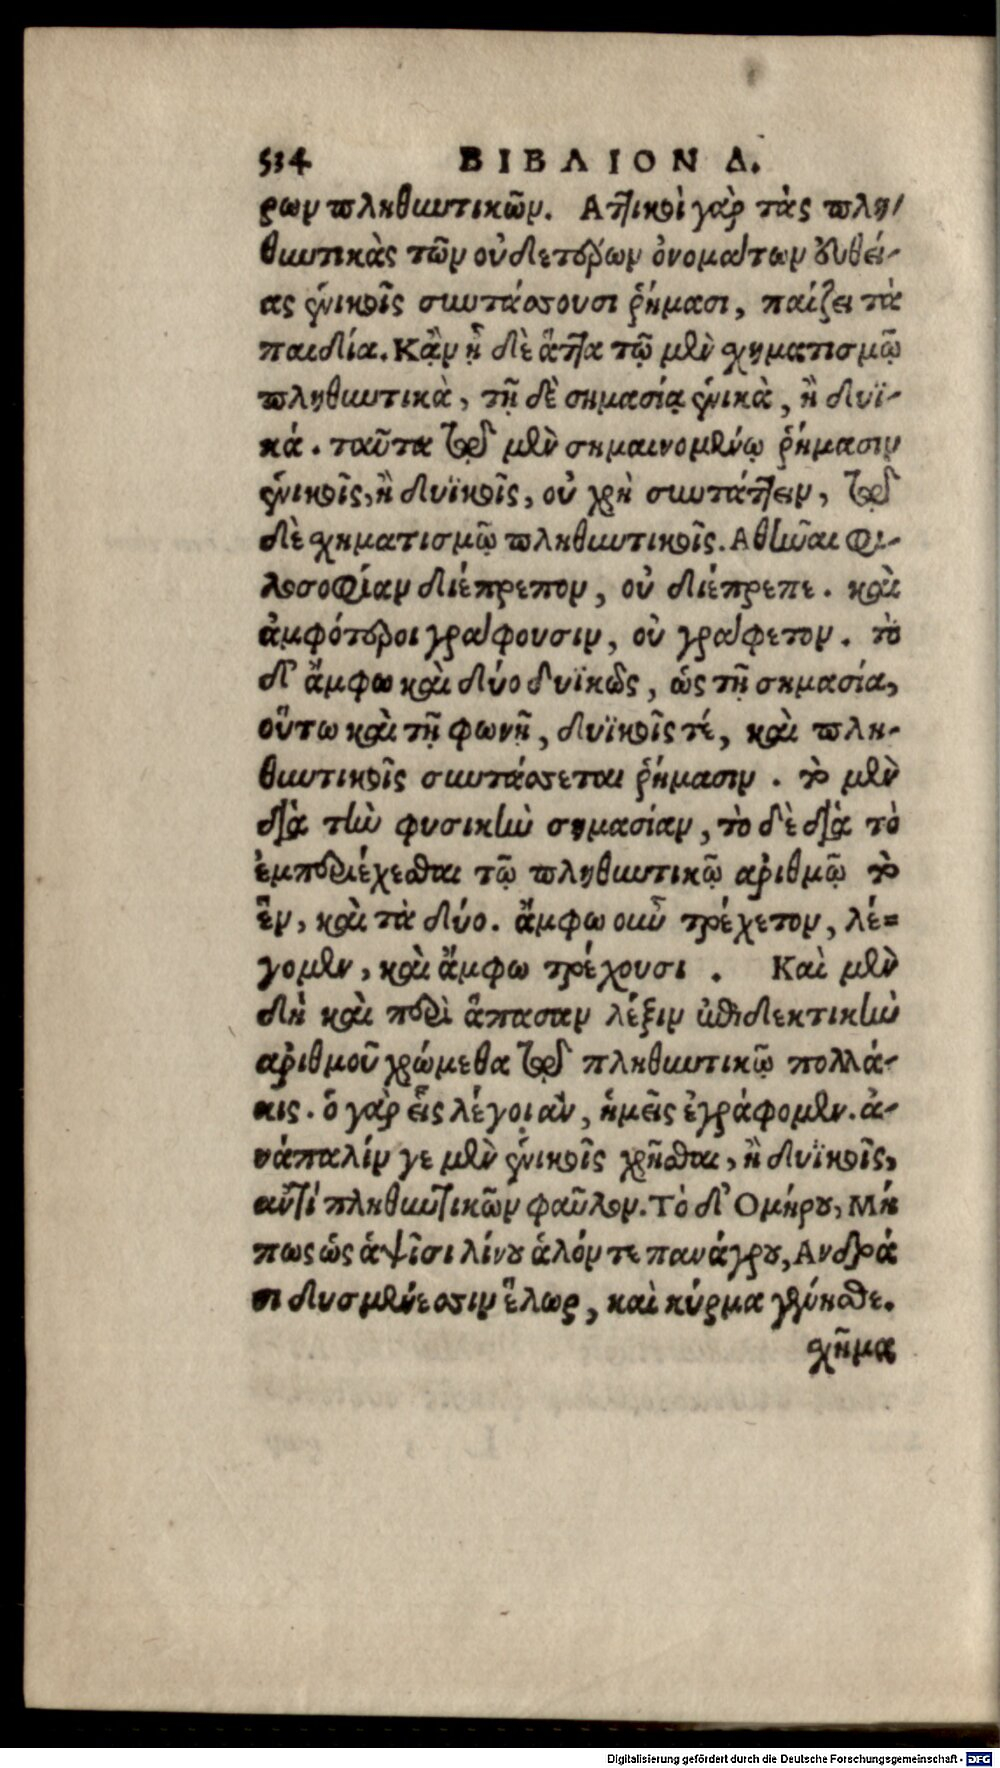 534 ΒΙΒΛΙΟΝ Δ.
ρων πληθυντικῶν. Ἀττικοὶ γὰρ τὰς πλη-
θυντικὰς τῶν οὐδετέρων ὀνομάτων εὐθεί-
ας ἑνικοῖς συντάσσουσι ῥήμασι, παίζει τὰ
παιδία. Κᾂν ᾖ δὲ ἄττα τῷ μὲν σχηματισμῷ
πληθυντικὰ, τῇ δὲ σημασίᾳ ἑνικὰ, ἢ δυϊ-
κά. ταῦτα τῷ μὲν σημαινομένῳ ῥήμασιν
ἑνικοῖς, ἢ δυϊκοῖς, οὐ χρὴ συντάττειν, τῷ
δὲ σχηματισμῷ πληθυντικοῖς. Ἀθῆναι φι-
λοσοφίαν διέπρεπον, οὐ διέπρεπε. καὶ
ἀμφότεροι γράφουσιν, οὐ γράφετον. τὸ
δ' ἄμφω καὶ δύο δυϊκῶς, ὡς τῇ σημασίᾳ,
οὕτω καὶ τῇ φωνῇ, δυϊκοῖς τέ, καὶ πλη-
θυντικοῖς συντάσσεται ῥήμασιν. τὸ μὲν
διὰ τὴν φυσικὴν σημασίαν, τὸ δὲ διὰ τὸ
ἐμπεριέχεσθαι τῷ πληθυντικῷ ἀριθμῷ τὸ
ἓν, καὶ τὰ δύο. ἄμφω οὖν τρέχετον, λέ-
γομεν, καὶ ἄμφω τρέχουσι. Καὶ μὲν
δὴ καὶ περὶ ἅπασαν λέξιν ἐπιδεκτικὴν
ἀριθμοῦ χρώμεθα τῷ πληθυντικῷ πολλά-
κις. ὁ γὰρ εἷς λέγοι ἂν, ἡμεῖς ἐγράφομεν. ἀ-
νάπαλίν γε μὲν ἑνικοῖς χρῆσθαι, ἢ δυϊκοῖς,
ἀντὶ πληθυντικῶν φαῦλον. Τὸ δ' Ὁμήρου, Μή
πως ὡς ἀψῖσι λίνου ἁλόντε πανάγρου, Ἀνδρά
σι δυσμενέεσσιν ἕλωρ, καὶ κύρμα γένησθε.
σχῆμα
Digitalisierung gefördert durch die Deutsche Forschungsgemeinschaft - DFG